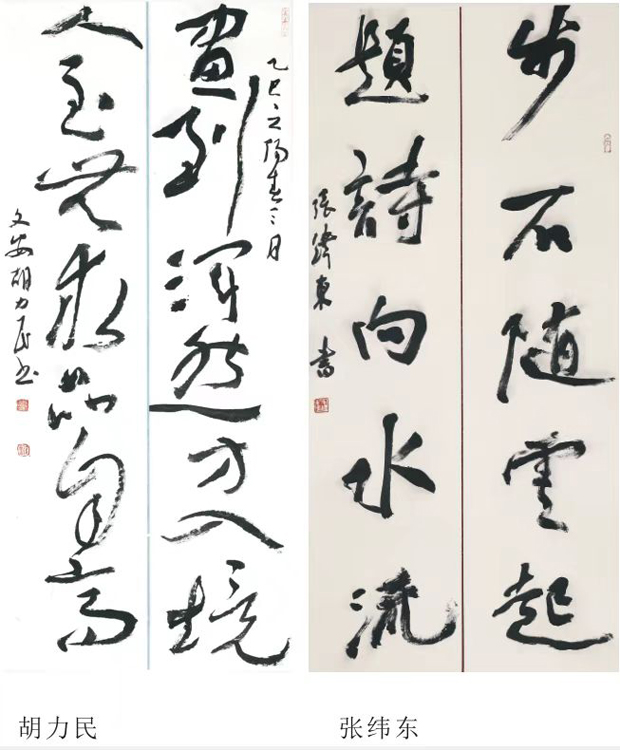 畫到渾然方入境
乙巳之陽春三日
人至無求品自高
文安胡力民书
步石随雲起
題詩向水流
張緯東書
胡力民
张纬东